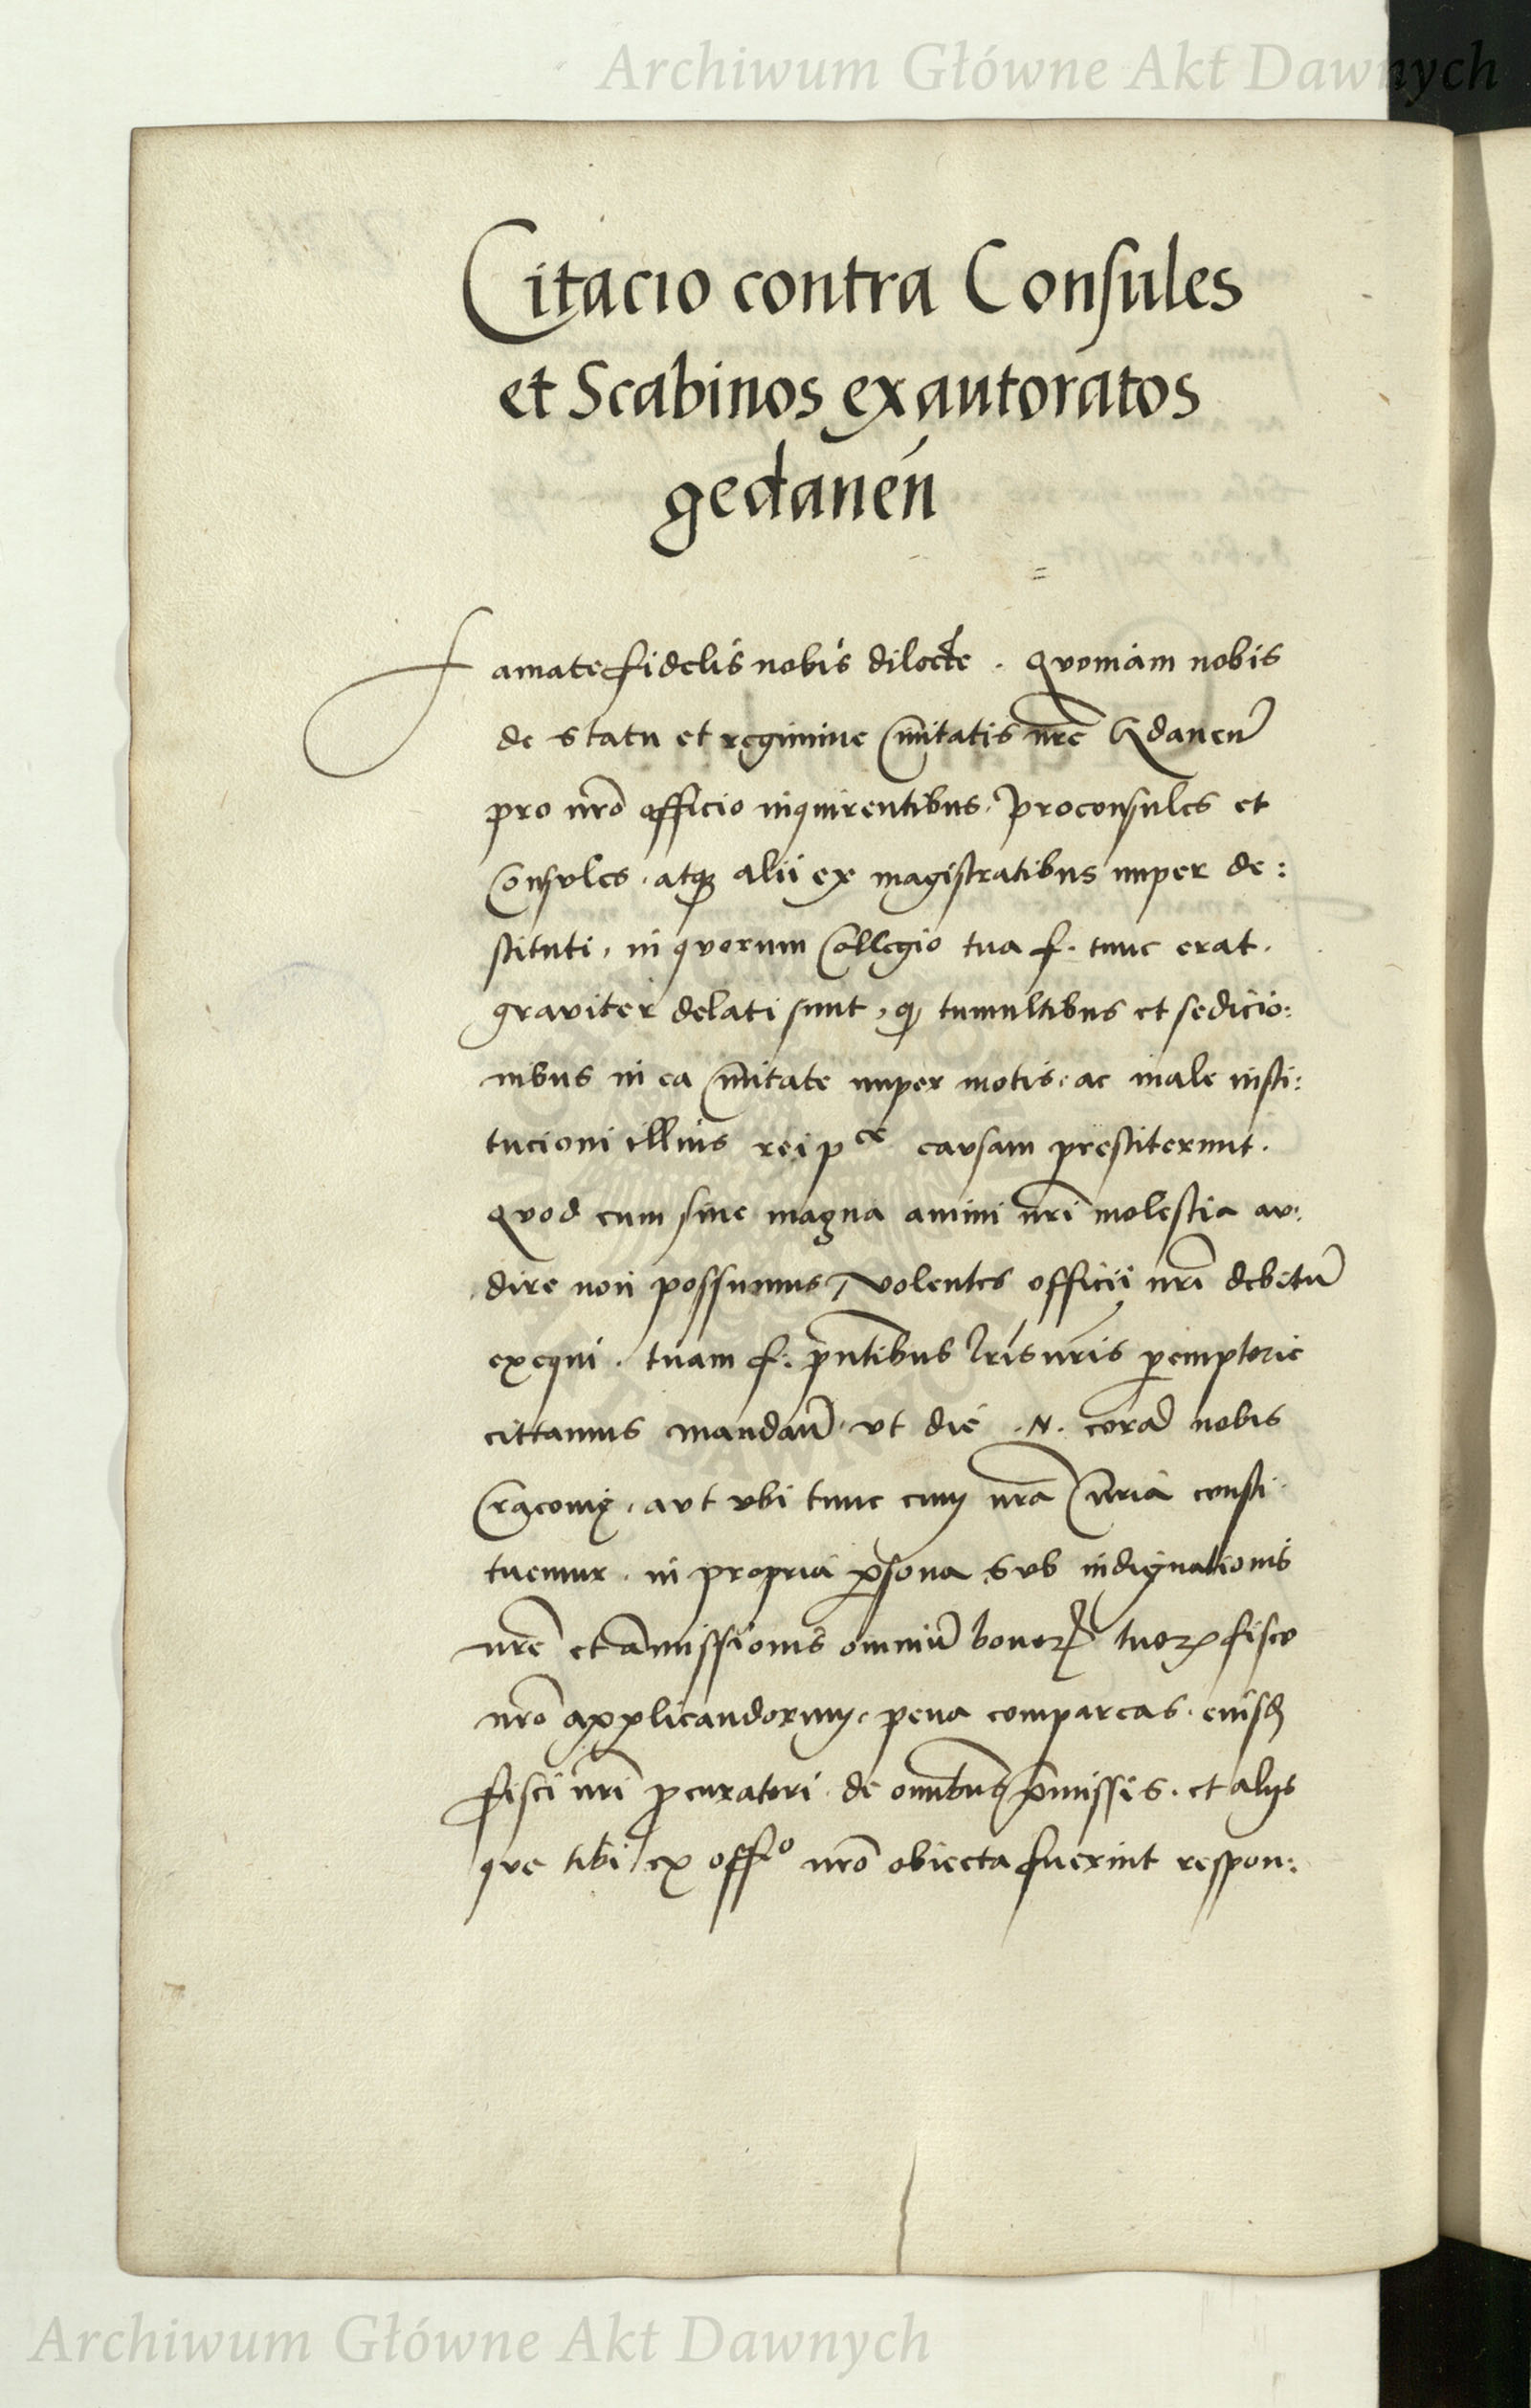 Archiwum Główne Akt Dawnych
Citacio contra Consules
et Scabinos exautoratos
gedanen̄
Famate fidelis nobis dilecte. Quoniam nobis
de statu et regimine Civitatis nr̄e Gedanen̄
pro nr̄o officio inquirentibus. Proconsules et
Consules. atq; alii ex magistratibus nuper de:
stituti, in quorum Collegio tua f. tunc erat.
graviter delati sunt, q, tumultibus et sedicio:
nibus in ea Civitate nuper motis. ac male insti:
tucioni illius reipce causam prestiterunt.
Quod cum sine magna animi nr̄i molestia au:
dire non possumus, Volentes officii nr̄i debitū
exequi. tuam f: pn̄tibus lr̄is nr̄is peremptorie
cittamus mandan̄. ut die .N. corā nobis
Cracovię. aut ubi tunc cum nr̄a Curia consti
tuemur. in propria p̱sona sub indignationis
nr̄e et amissionis omniū bonoꝝ tuoꝝ fisco
nr̄o applicandorum, pena compareas. eiusd̄
fisci nr̄i ꝓcuratori de omībus p̄missis. et alijs
que tibi ex offo nr̄o obiecta fuerint respon:
Archiwum Główne Akt Dawnych